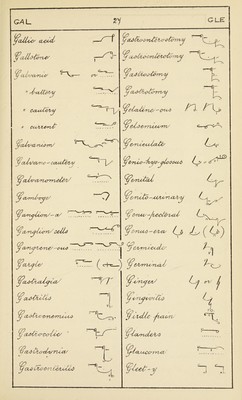 GAL
27
GLE
Gallic acid
Gallstone
Galvanic
" battery
" cautery
" current
Galvanism
Galvano-cautery
Galvanometer
Gamboge
Ganglion-a
Ganglion cells
Gangrene-ous
Gargle
Gastralgia
Gastritis
Gastrocnemius
Gastrocolic
Gastrodynia
Gastroenteritis
Gastroenterostomy
Gastroenterotomy
Gastrostomy
Gastrotomy
Gelatine-ous
Gelsemium
Geniculate
Genio-hyo-glossus
Genital
Genito-urinary
Genu-pectoral
Genus-era
Germicide
Germinal
Ginger
Gingivitis
Girdle pain
Glanders
Glaucoma
Gleet-y